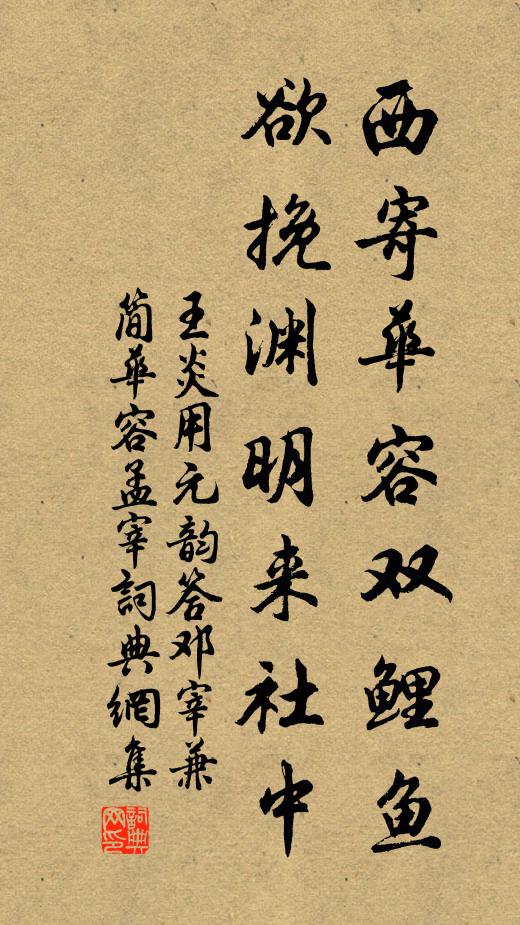 西寄华容双鲤鱼
欲挽渊明来社中
王炎用元韵答邓宰兼
简华容孟宰詞典網集
詞典网印